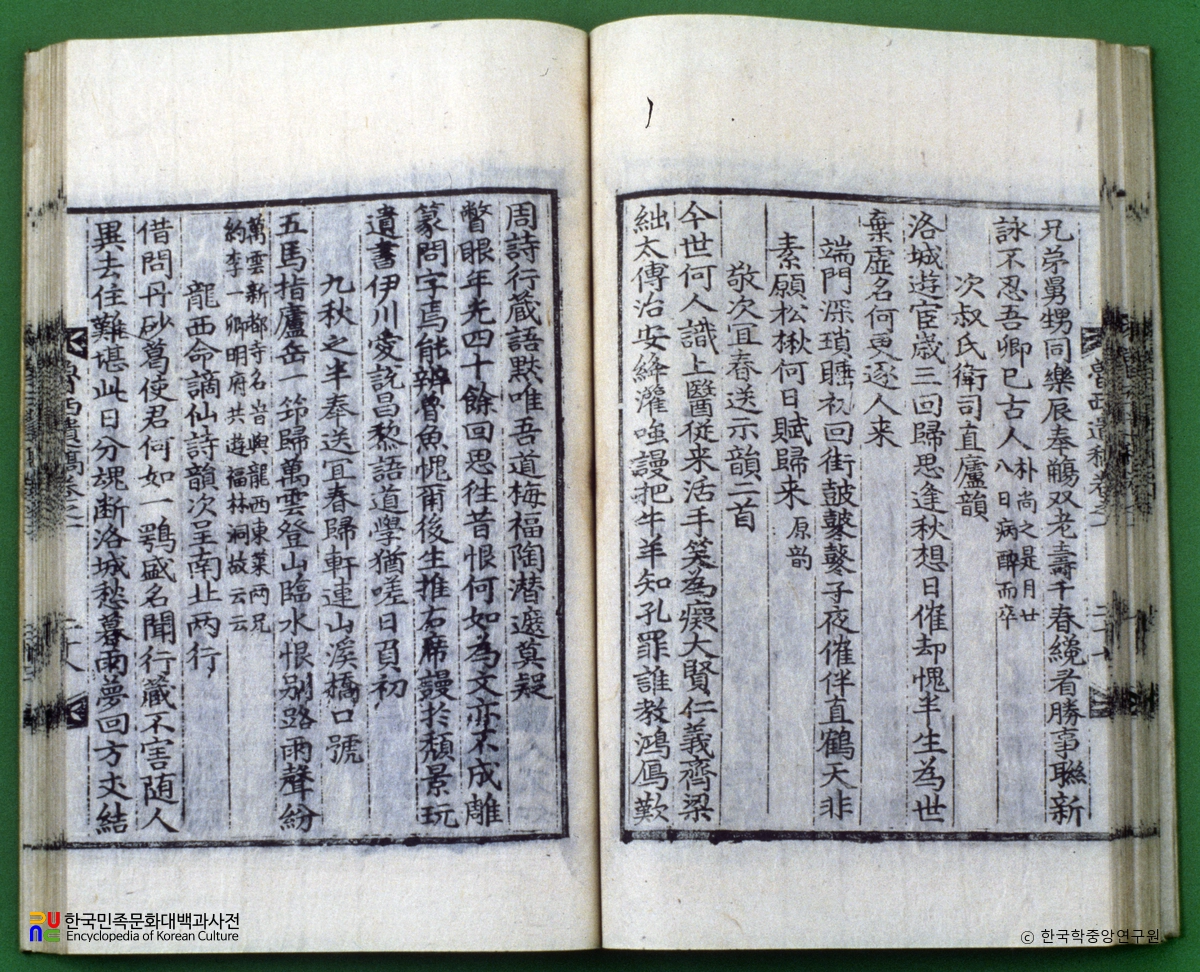 兄弟舅甥同樂辰奉觴双老壽千春纔看勝事聮新
詠不忍吾卿已古人朴尚之是月廿八日病醉而卒
次叔氏衛司直廬韻
洛城遊宦歳三回歸思逢秋想日催却愧半生為世
棄虚名何更逐人来
端門深瑣睡初回街皷鼕鼕子夜催伴直鶴天非
素願松楸何日賦歸来原韵
敬次宜春送示韻二首
今世何人識上醫従来活手笑為癡大賢仁義齊梁
絀太傅治安絳灌嗤謾把牛羊知孔罪誰教鴻鴈歎
周詩行蔵語黙唯吾道梅福陶潜遯莫疑
瞥眼年光四十餘回思往昔恨何如為文亦不成離
篆問字焉能辨魯魚愧甭後生推右席謾扵頽景玩
遺書伊川愛説昌黎語道學猶嗟日負初
九秋之半奉送宜春歸軒連山溪橋口號
五馬指廬岳一笻歸萬雲登山臨水恨别路雨聲紛
萬雲新都寺名峕與龍西東萊两兄
約李一卿明府共遊福林洞故云云
龍西命謫仙詩韻次呈南北两行
借問丹砂葛使君何如一鶚盛名聞行藏不害随人
異去住難堪此日分魂断洛城愁暮雨夢回方丈結
魯西遺稿卷之二
한국민족문화대백과사전
Encyclopedia of Korean Culture
© 한국학중앙연구원